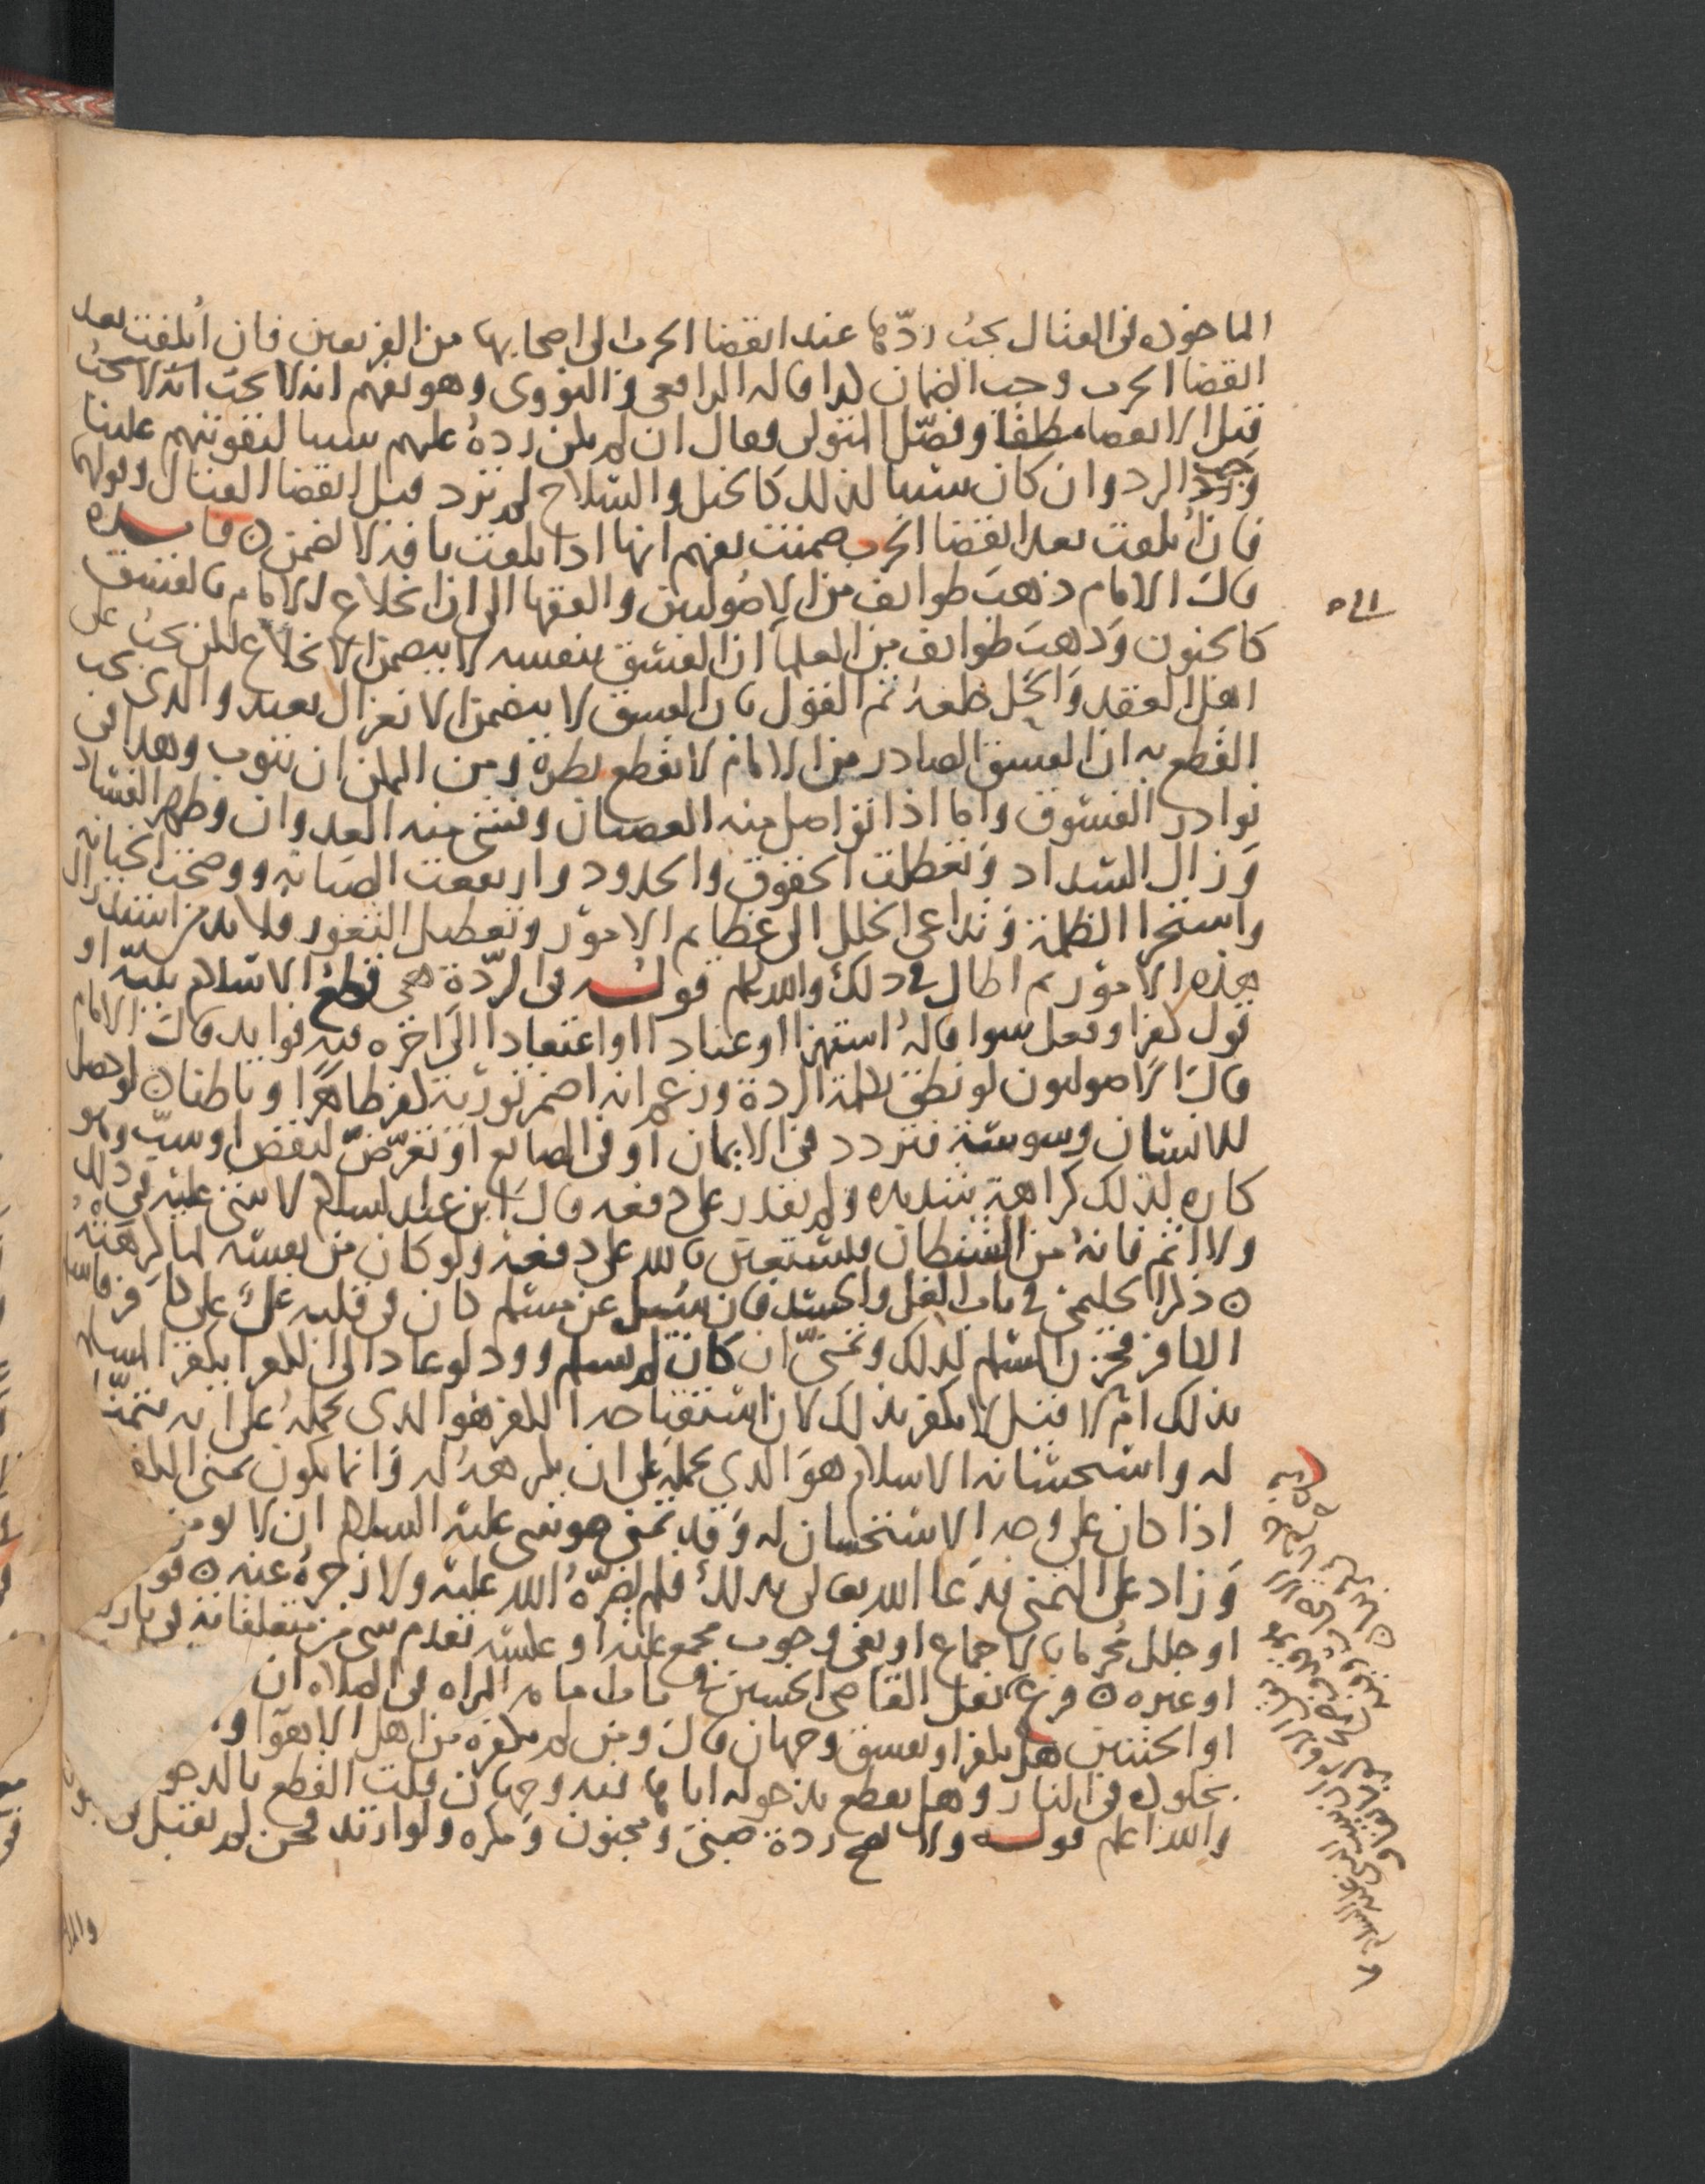 الماخوذه في القتال يجب ردّها عند انقضا الحرب الى اصحابها من الفريقين فان اتلفت بعد
انقضا الحرب وجب الضمان كذا قاله الرافعي والنووي وهو يفهم انه لا يجب انه لا يجب
قبل الانقضا مطلقا وفصّل المتولي فقال ان لم يكن رده عليهم سببا لتقويتهم علينا
وجب الرد وان كان سببا لذلك كالخيل والسلاح لم ترد قبل انقضا القتال وقولهم
فان اتلفت بعد انقضا الحرب ضمنت يفهم انها اذا تلفت بافة لا تضمن ٥ فايده
قال الامام ذهب طوايف من الاصوليين والفقها الى ان انخلاع الامام بالفسق
كالجنون وذهب طوايف من العلما ان الفسق بنفسه لا يتضمن الانخلاع لكن يجب على
اهل العقد والحل خلعه ثم القول بان الفسق لا يتضمن الانعزال بعيد والذي يجب
القطع به ان الفسق الصادر من الامام لا يقطع نظره ومن الممكن ان يتوب وهذا في
نوادر الفسوق واما اذا تواصل منه العصيان وفشى منه العدوان وظهر الفساد
وزال السداد وتعطلت الحقوق والحدود وارتفعت الصيانه ووضحت الخيانه
واستجرا الظلمة وتداعى الخلل الى عظايم الامور وتعطيل الثغور فلا بد من استدراك
هذه الامور ثم اطال في ذلك والله اعلم قوله في الردة هي قطع الاسلام بنية او
قول كفر او فعل سوا قاله استهزا او عنادا او اعتقادا الى اخره فيه فوايد قال الامام
قال الاصوليون لو نطق بكلمة الردة وزعم انه اضمر تورية كفر ظاهرًا وباطنا ٥ لو حصل
للانسان وسوسة فتردد في الايمان او في الصانع او تعرّض لنقض او سبّ وهو
كاره لذلك كراهة شديده ولم يقدر على دفعه قال ابن عبد السلام لا شي عليه في ذلك
ولا اثم فانه من الشيطان فليستعن بالله على دفعه ولو كان من نفسه لما كرهه
٥ ذكر الحليمي في باب الغل والحسد فان سيل عن مسلم كان في قلبه غل على كافر فاسلم
الكافر فحزن المسلم لذلك وتمنى ان كان لم يسلم وود لو عاد الى الكفر ايكفر المسلم
بذلك ام لا قيل لا يكفر بذلك لان استقباحه الكفر هو الذي يحمله على ان يتمناه
له واستحسانه الاسلام هو الذي يحمله على ان يكرهه له وانما يكون تمني الكفر
اذا كان على وجه الاستحسان له وقد تمنى موسى عليه السلام ان لا يومن
وزاد على التمني فدعا الله تعالى بذلك فلم يضرّه الله عليه ولا زجره عنه ٥
او حلل محرما بالاجماع او نفى وجوب مجمع عليه او عكسه تقدم شي من متعلقاته في
او غيره ٥ فرع نقل القاضي الحسين في باب امامة المراه في الصلاة ان
او الختنين هل يكفر او يفسق وجهان قال ومن لم نكفره من اهل الاهوا
بخلوده في النار وهل يقطع بدخوله اياها فيه وجهان قلت القطع بالدخو
والله اعلم قوله ولا تصح ردة صبي ومجنون ومكره ولو ارتد فجن لم يقتل في